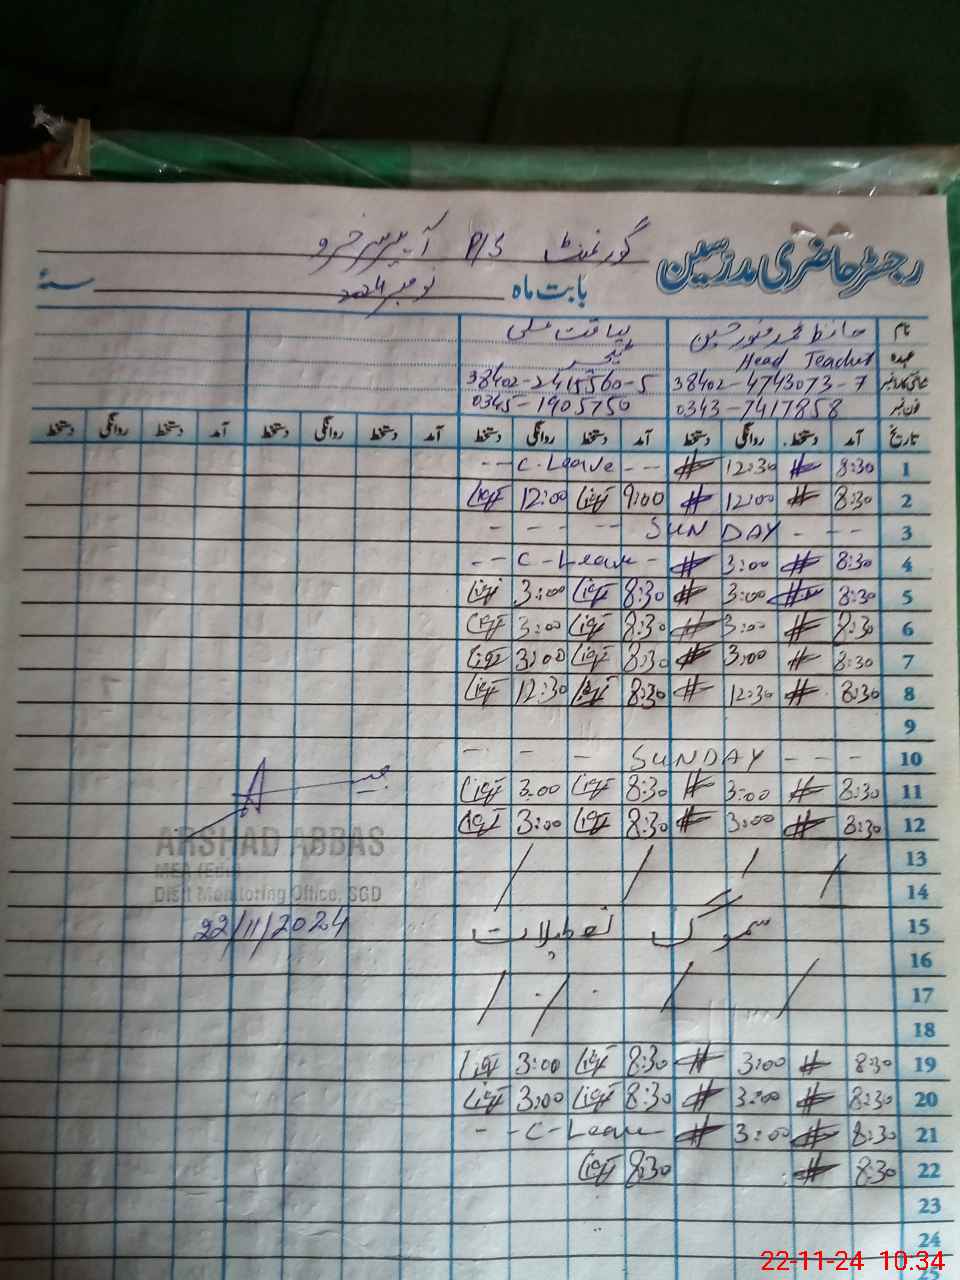 رجسٹر حاضری مدرسین گورنمنٹ P/S
بابت ماہ نومبر 2024 سنہ
نام حافظ محمد منور حسین لیاقت علی
عہدہ Head Teacher ٹیچر
شناختی کارڈ نمبر 38402-4743073-7 38402-2415560-5
فون نمبر 0343-7417858 0345-1905750
تاریخ آمد دستخط روانگی دستخط آمد دستخط روانگی دستخط آمد دستخط روانگی دستخط آمد دستخط روانگی دستخط
1 8:30 12:30 -- C. Leave ---
2 8:30 12:00 9:00 12:00
3 --- SUNDAY - - - --
4 8:30 3:00 -- C - Leave -
5 8:30 3:00 8:30 3:00
6 8:30 3:00 8:30 3:00
7 8:30 3:00 8:30 3:00
8 8:30 12:30 8:30 12:30
9
10 - - - SUNDAY - - -
11 8:30 3:00 8:30 3:00
12 8:30 3:00 8:30 3:00
ARSHAD ABBAS
13
MEA (Edu)
14
Distt Monitoring Office, SGD
15 سموگ تعطیلات
22/11/2024
16
17
18
19 8:30 3:00 8:30 3:00
20 8:30 3:00 8:30 3:00
21 8:30 3:00 - - C - Leave -
22 8:30 8:30
23
24
25
22-11-24 10:34